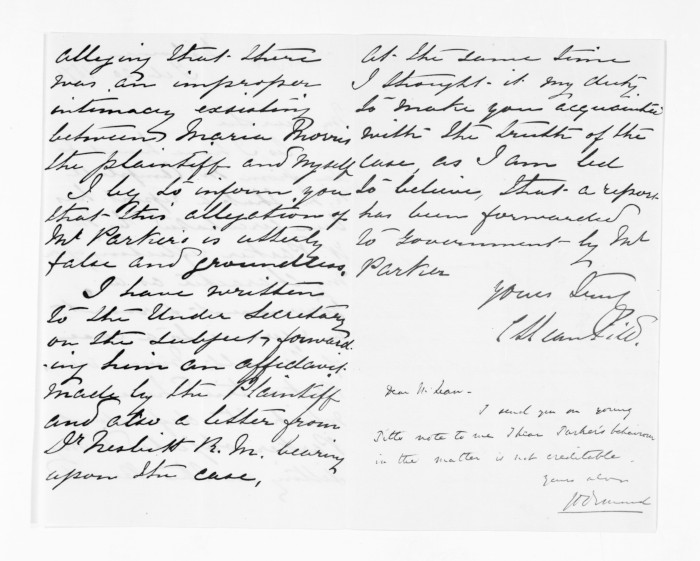 alleging that there
was an improper
intimacy existing
between Maria Morris
the plaintiff and myself
I beg to inform you
that this allegation of
Mr Parker's is utterly
false and groundless.
I have written
to the Under Secretary
on the subject, forward-
-ing him an affidavit
made by the Plaintiff
and also a letter from
Dr Nesbitt R. M. bearing
upon the case,
At the same time
I thought it my duty
to make you acquainted
with the truth of the
case, as I am led
to believe, that a report
has been forwarded
to Government by Mr
Parker
Yours truly
Dear McLean -
I send you on young
Pitts note to me I hear Parker's behaviour
in the matter is not creditable.
Yours